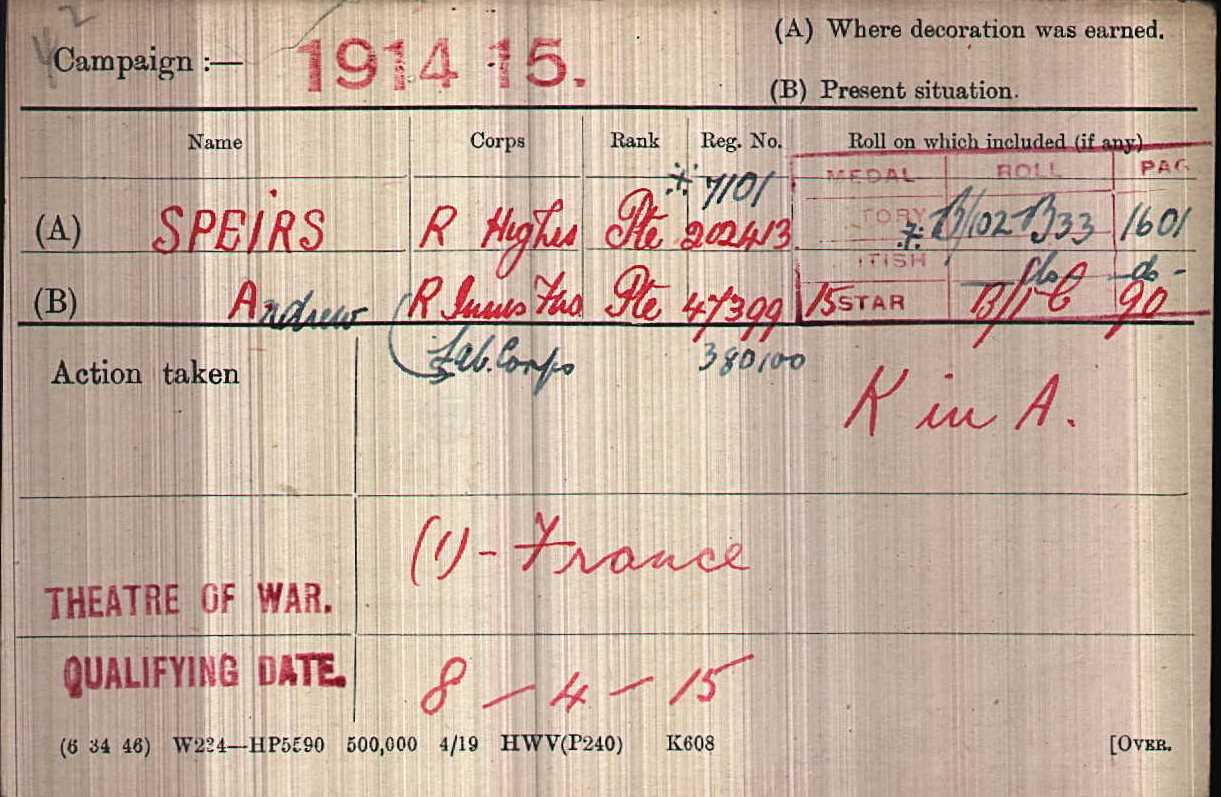 2
Campaign :— 1914 15. (A) Where decoration was earned.
(B) Present situation.
Name Corps Rank Reg. No. Roll on which included (if any)
MEDAL ROLL PAG
* 7101
(A) SPEIRS R Highrs Pte 202413 TORY * B/102 B33 1601
ITISH do do -
(B) Andrew R Innis Fus Pte 47399 15 STAR 90
Lab. Corps 380100
Action taken
K in A.
(1) - France
THEATRE OF WAR.
QUALIFYING DATE. 8 — 4 — 15
(6 34 46) W224—HP5590 500,000 4/19 HWV(P240) K608 [OVER.